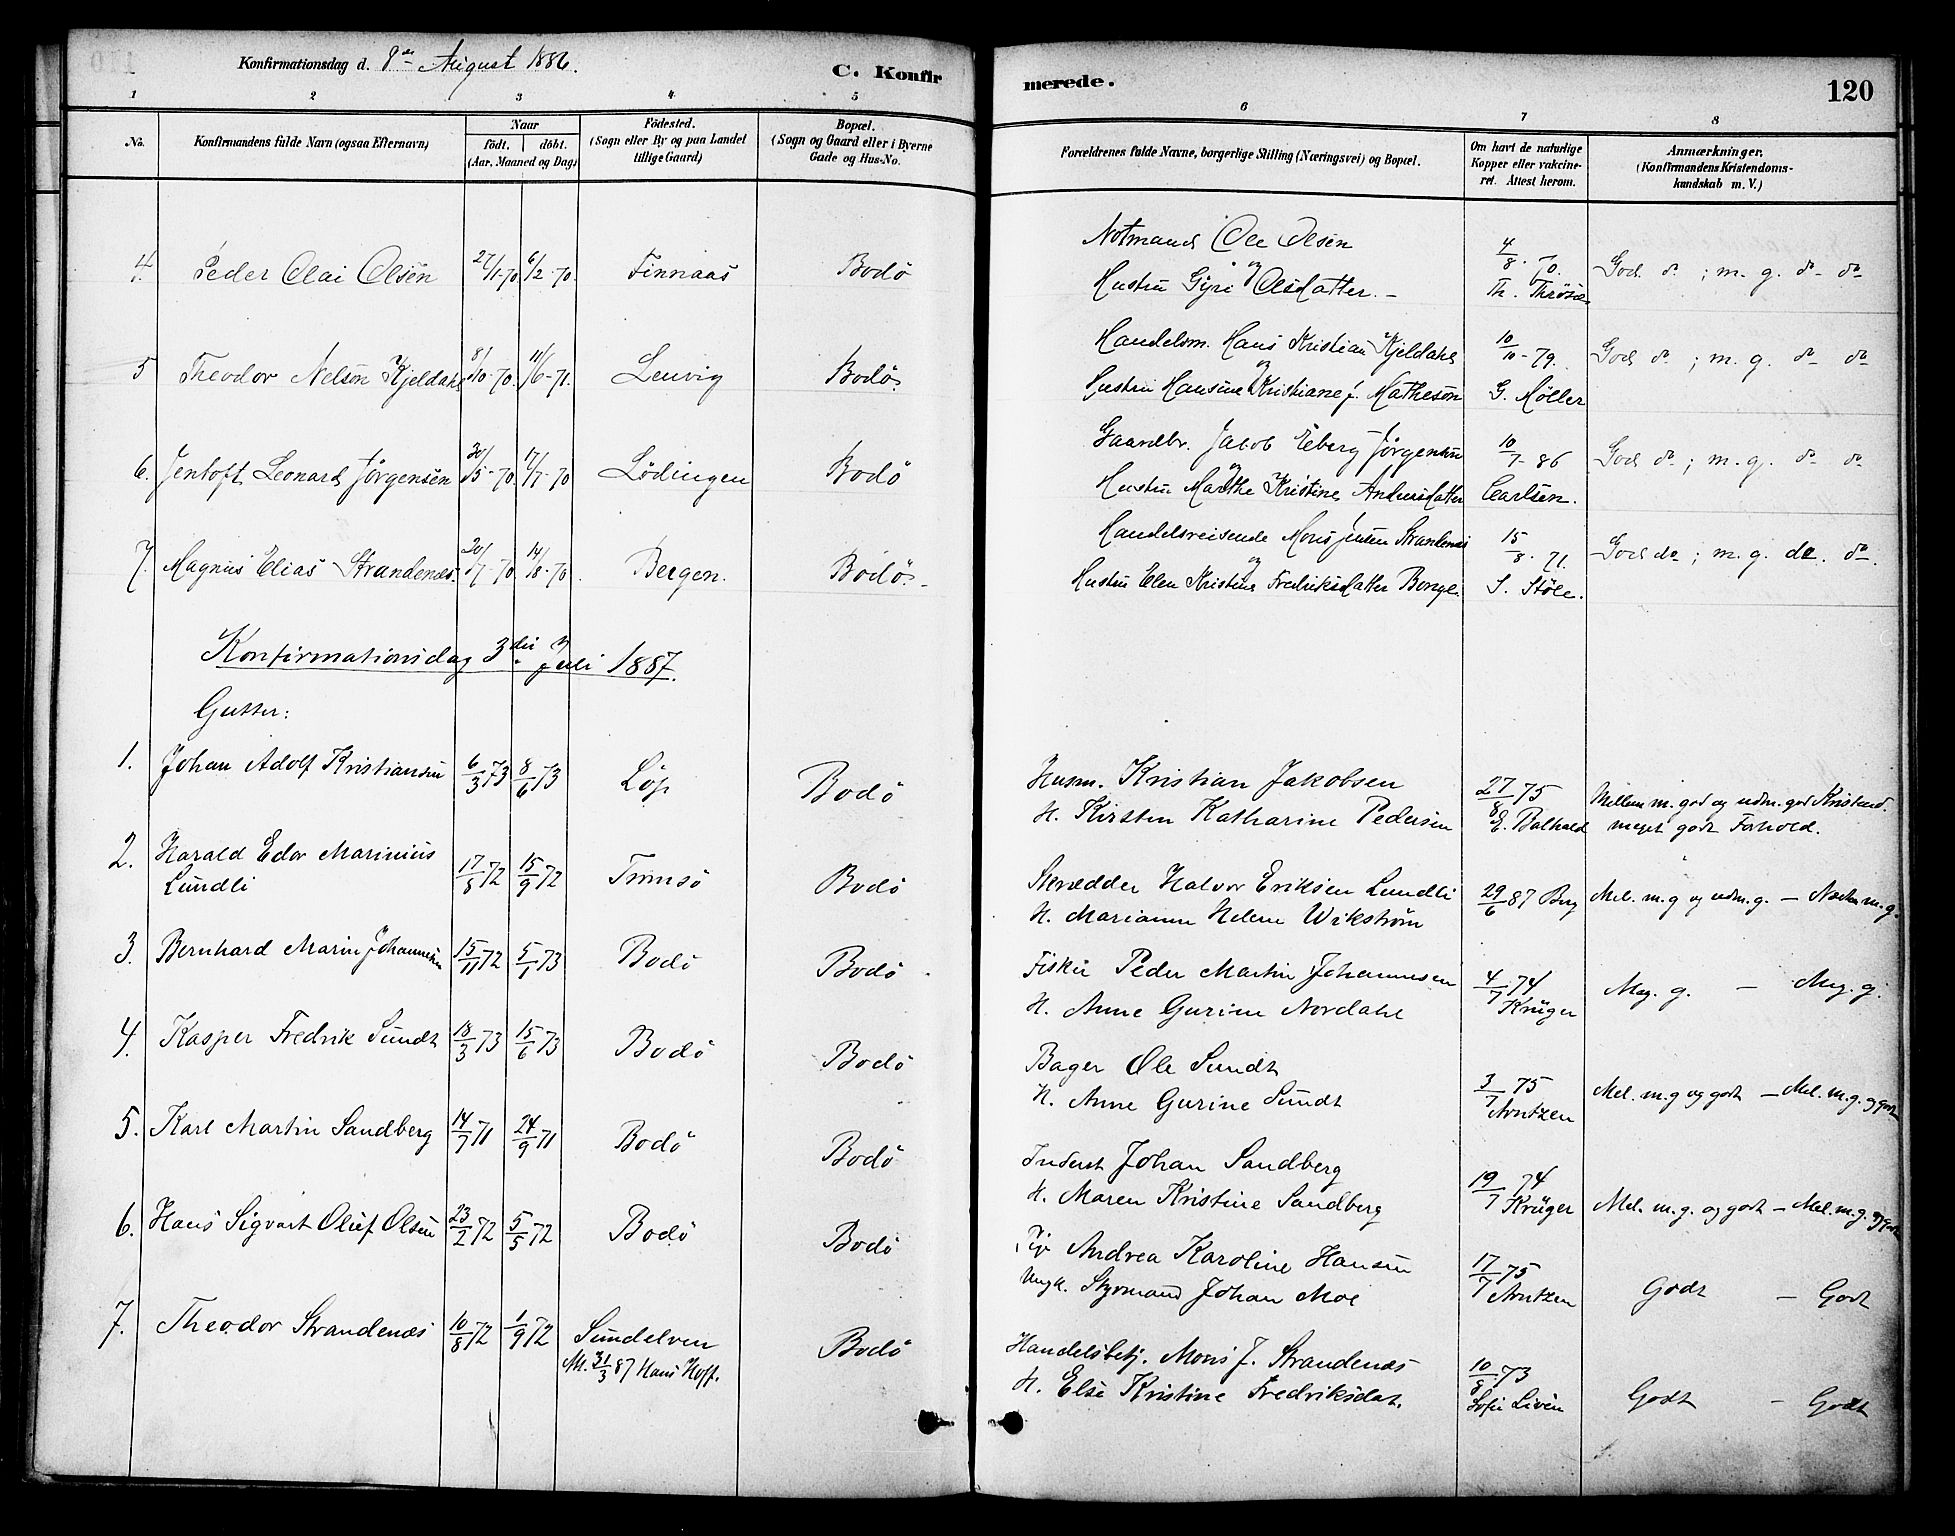 Konfirmationsdag d. 8de August 1886.
C. Konfirmerede.
120
1 2 3 4 5 6 7 8
No.
Konfirmandens fulde Navn (ogsaa Efternavn)
Naar
födt. döbt.
(Aar, Maaned og Dag)
Födested.
(Sogn eller By og paa Landet
tillige Gaard)
Bopæl.
(Sogn og Gaard eller i Byerne
Gade og Hus-No.
Forældrenes fulde Navne, borgerlige Stilling (Næringsvei) og Bopæl.
Om havt de naturlige
Kopper eller vakcine-
ret. Attest herom.
Anmærkninger.
(Konfirmandens Kristendoms-
kundskab m. V.)
4. Peder Olai Olsen 27/1-70 6/2-70. Finnaas Bodö
Notmand Ole Olsen
og
Hustru Gjøri Olsdatter. –
4/8-70.
Th.
God do ; m. g. do do
5 Theodor Nelson Kjeldahl 8/10-70. 11/6-71. Lenvig Bodö.
Handelsm. Hans Kristian Kjeldahl
og
Hustru Hansine Kristiane f. Matheson
10/10-79.
G. Möller
God do ; m. g. do do
6. Jentoft Leonard Jörgensen 30/5-70. 17/7-70 Lödingen Bodö
Gaardbr. Jacob Eberg Jörgensen
og
Hustru Marthe Kristine Andersdatter
10/7-86
Carlsen.
God do ; m. g. do do
7. Magnus Elias Strandenæs 20/7-70 14/8-70. Bergen. Bodö. –
Handelsreisende Mons Jensen Strandenæs
og
Hustru Elen Kristine Fredriksdatter Borge.
15/8-71.
S. Støle.
God do ; m. g. do. do.
Konfirmationsdag 3die Juli 1887.
Gutter:
1. Johan Adolf Kristiansen 6/3 73 8/6 73 Løp Bodö
Husm. Kristian Jakobsen
H. Kirsten Katharine Pedersen
27/8 75
E. Balhald
Mellem m. god og udm. god Kristend.
meget godt Forhold.
2. Harald Edor Marinius
Lundli
17/8 72 15/9 72 Tromsö Bodö
Skrædder Halvor Eriksen Lundli
H. Marianne Helene Wikstrøm
29/6 87 Berg
Mel. m. g og udm. g. – m. g.
3. Bernhard Marin Johannesen 15/11 72 5/1 73 Bodö Bodö
Fisker Peder Martin Johannesen
H. Anne Gurine Nordahl
4/7 74
Krüger
Meg. g. – Meg. g.
4. Kasper Fredrik Sundt 18/3 73 15/6 73 Bodö Bodö
Bager Ole Sundt
H. Anne Gurine Sundt
3/7 75
Arntzen
Mel. m. g og godt – Mel. m. g. og godt
5. Karl Martin Sandberg 14/7 71 24/9 71 Bodö Bodö
Inderst Johan Sandberg
H. Maren Kristine Sandberg
19/7 74
Krüger
Mel. m. g. og godt – Mel. m. g. og godt
6. Hans Sigvart Oluf Olsen 23/2 72 5/5 72 Bodö Bodö
Pige Andrea Karoline Hansen
Ungk. Styrmand Johan Moe
17/7 75
Arntzen
Godt – Godt
7. Theodor Strandenæs 10/8 72 1/9 72 Sundelven
M. 31/3 87 Hans Hoff.
Bodö
Handelsbetj. Mons J. Strandenæs
H. Else Kristine Fredriksdat.
10/8 73
Sofie Livén
Godt – Godt